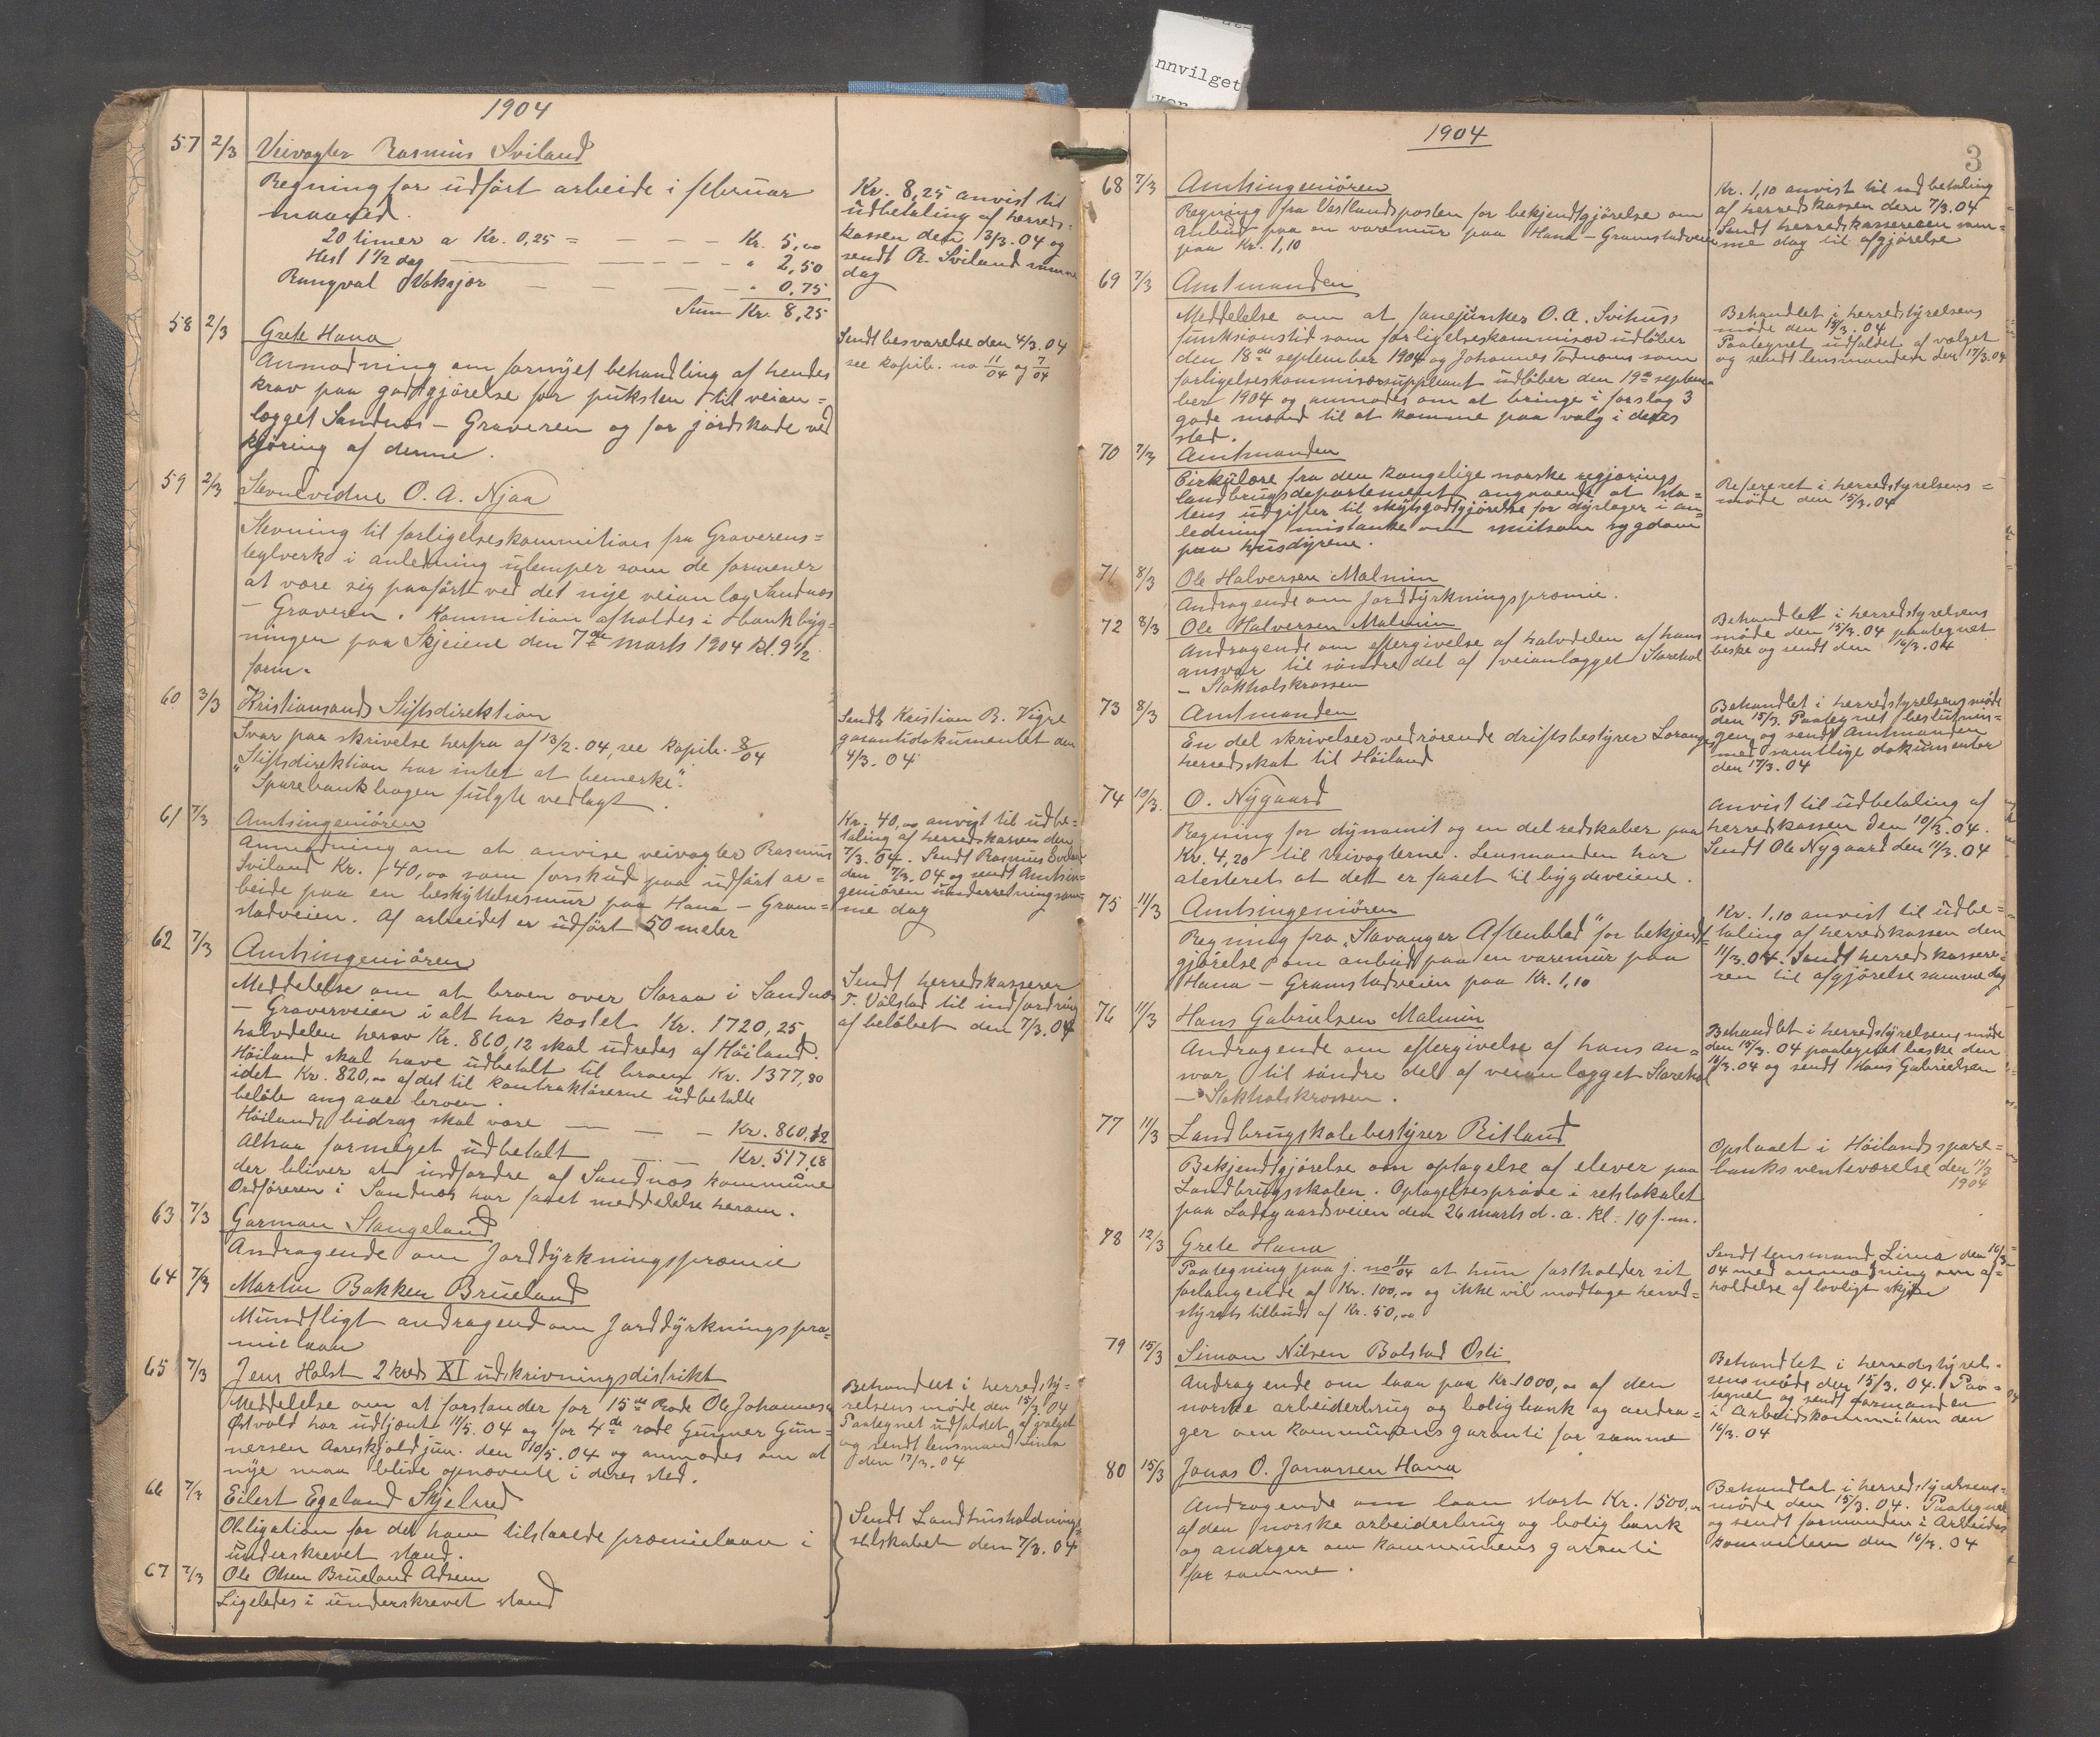 nnvilget
1904
57 2/3 Veivogter Rasmus Sviland
Regning for udført arbeide i februar
maaned.
20 timer a Kr. 0,25 = — — — Kr. 5,00
Hest 1 1/2 dag — — — — " 2,50
Rangval Vaksjør — — — — " 0,75
Sum Kr. 8,25
Kr. 8,25 anvist til
udbetaling af herreds-
kassen den 3/3. 04 og
sendt R. Sviland samme
dag
58 2/3 Grete Hana
Anmodning om fornyet behandling af hendes
krav paa godtgjørelse for puksten til veian=
lægget Sandnæs — Graveren og for jordskade ved
kjøring af denne.
Sendt besvarelse den 4/3. 04
see kopib. no 11/04 og 7/04
59 2/3 Stevnevidne O. A. Njaa
Stevning til forligelseskommition fra Graverens=
teglverk i anledning ulemper som de formener
at være sig paaført ved det nye veianlæg Sandnæs
— Graveren. Kommition afholdes i bankbyg=
ningen paa Skjeiene den 7de marts 1904 kl. 9 1/2
form.
60 3/3 Kristiansands Stiftsdirektion
Svar paa skrivelse herfra af 13/2. 04, see kopib. 8/04
"Stiftsdirektion har intet at bemerke".
Sparebankbogen fulgte vedlagt.
Sendt Kristian R. Vigre
garantidokumentet den
4/3. 04
61 7/3 Amtsingeniøren
Anmodning om at anvise veivogter Rasmus
Sviland Kr. 40,00 som forskud paa udført ar=
beide paa en beskyttelsesmur paa Hana — Gram=
stadveien. Af arbeidet er udført 50 meter
Kr. 40,00 anvist til udbe=
taling af herredskassen den
7/3. 04. Sendt Rasmus Sviland
den 7/3. 04 og sendt Amtsin=
geniøren underretning sam=
me dag
62 7/3 Amtsingeniøren
Meddelelse om at broen over Storaa i Sandnæs
— Graverveien i alt har kostet Kr. 1720,25
halvdelen herav Kr. 860,12 skal udredes af Høiland.
Høiland skal have udbetalt til broen Kr. 1377,80
idet Kr. 820,00 af det til kontraktørerne udbetalte
beløb angaar broen.
Høilands bidrag skal være — — — Kr. 860,12
Altsaa formeget udbetalt — — Kr. 517,68
der bliver at indfordre af Sandnæs kommune
Ordføreren i Sandnæs har faaet meddelelse herom.
Sendt herredskasserer
T. Vølstad til indfordring
af beløbet den 7/3. 04
63 7/3 Garman Stangeland
Andragende om Jorddyrkningspræmie
64 7/3 Martin Bakken Brueland
Mundtligt andragend om Jorddyrkningspræ=
mielaan
65 7/3 Jens Holst 2 kreds XI udskrivningsdistrikt
Meddelelse om at forstander for 15de Rode Ole Johannesen
Østvold har udtjent 11/5. 04 og for 4de rode Gunner Gun=
nersen Aareskjold jun. den 10/5. 04 og anmodes om at
nye maa blive opnævnte i deres sted.
Behandlet i herredsty=
relsens møde den 15/3 04
Paategnet udfaldet af valget
og sendt lensmand Lima
den 17/3. 04
66 7/3 Eilert Egeland Skjelbred
Obligation for det ham tilstaaede præmielaan i
underskrevet stand.
67 7/3 Ole Olsen Brueland Adsen
Ligeledes i underskrevet stand
Sendt Landhusholdnings
selskabet den 7/3. 04
1904
3
68 7/3 Amtsingeniøren
Regning fra Vestlandsposten for bekjendtgjørelse om
Anbud paa en varemur paa Hana — Gramstadveien
paa Kr. 1,10
Kr. 1,10 anvist til udbetaling
af herredskassen den 7/3. 04
Sendt herredskassereren sam=
me dag til afgjørelse
69 7/3 Amtmanden
Meddelelse om at fanejunker O. A. Svihus's
funksionstid som forligelseskommisær udløber
den 18de september 1904 og Johannes Todnems som
forligelseskommisærsuppleant udløber den 19de septem
ber 1904 og anmodes om at bringe i forslag 3
gode mænd til at komme paa valg i deres
sted.
Behandlet i herredstyrelsens
møde den 15/3. 04
Paategnet udfaldet af valget
og sendt lensmanden den 17/3. 04
70 7/3 Amtmanden
Cirkulære fra den kongelige norske regjerings
landbrugsdepartement angaaende at sta=
tens udgifter til skydsgodtgjørelse for dyrlæger i an=
ledning mistanke om smitsom sygdom
paa husdyrene.
Refereret i herredstyrelsens=
møde den 15/3. 04
71 8/3 Ole Halversen Malmin
Andragende om Jorddyrkningspræmie.
72 8/3 Ole Halversen Malmin
Andragende om eftergivelse af halvdelen af hans
ansvar til søndre del af veianlægget Storehol
— Stokholskrossen
Behandlet i herredstyrelsens
møde den 15/3. 04 paategnet
beske og sendt den 16/3. 04
73 8/3 Amtmanden
En del skrivelser vedrørende driftsbestyrer Lorange
herredsskat til Høiland
Behandlet i herredstyrelsens møde
den 15/3. Paategnet beslutnin=
gen og sendt Amtmanden
med samtlige dokumenter
den 17/3. 04
74 10/3. O. Nygaard
Regning for dynamit og en del redskaber paa
Kr. 4,20 til veivogterne. Lensmanden har
atesteret at det er faaet til bygdeveiene.
Anvist til udbetaling af
herredskassen den 10/3. 04.
Sendt Ole Nygaard den 11/3. 04
75 11/3 Amtsingeniøren
Regning fra "Stavanger Aftenblad" for bekjendt=
gjørelse om anbud paa en varemur paa
Hana — Gramstadveien paa Kr. 1,10
Kr. 1,10 anvist til udbe=
taling af herredskassen den
11/3. 04. Sendt herredskassere=
ren til afgjørelse samme dag
76 11/3 Hans Gabrielsen Malmin
Andragende om eftergivelse af hans an=
svar til søndre del af veianlægget Storehol
— Stokholskrossen.
Behandlet i herredstyrelsens møde
den 15/3. 04 paategnet beske den
16/3. 04 og sendt Hans Gabrielsen
77 11/3 Landbrugskolebestyrer Ritland
Bekjendtgjørelse om optagelse af elever paa
Landbrugsskolen. Optagelsesprøve i retslokalet
paa Ladegaardsveien den 26 marts d. a. kl. 10 f.m.
Opslaaet i Høilands spare=
banks venteværelse den 11/3
1904
78 12/3 Grete Hana
Paategning paa j. no 11/04 at hun fastholder sit
forlangende af Kr. 100,00 og ikke vil modtage herred=
styrets tilbud af Kr. 50,00
Sendt lensmand Lima den 16/3
04 med anmodning om af=
holdelse af lovligt skjøn
79 15/3 Simon Nilsen Bolstad Osli
Andragende om laan paa Kr 1000,00 af den
norske arbeiderbrug og boligbank og andra=
ger om kommunens garanti for samme
Behandlet i herredstyrel=
sens møde den 15/3. 04. Paa=
tegnet og sendt formanden
i Arbeidskommiteen den
16/3. 04
80 15/3 Jonas O. Jonassen Hana
Andragende om laan stort Kr. 1500,00
af den norske arbeiderbrug og bolig bank
og andrger om kommunens garanti
for samme.
Behandlet i herredstyrelsens=
møde den 15/3. 04. Paategnet
og sendt formanden i Arbeids
kommiteen den 16/3. 04